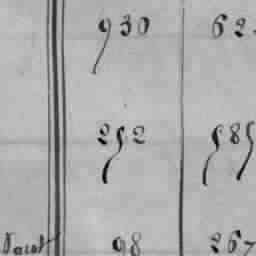 930 62
252 585
98 267